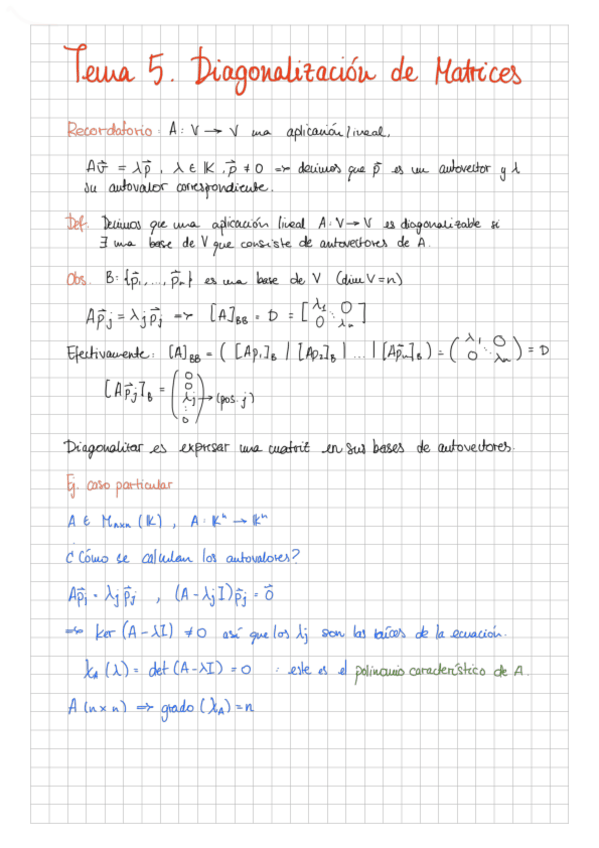 Tema 5. Diagonalización de Matrices
Recordatorio: A: V → V una aplicación lineal.
Av⃗ = λp⃗, λ ∈ K, p⃗ ≠ 0 ⇒ decimos que p⃗ es un autovector y λ
su autovalor correspondiente.
Def. Decimos que una aplicación lineal A: V → V es diagonalizable si
∃ una base de V que consiste de autovectores de A.
Obs. B: {p⃗₁, ..., p⃗ₙ} es una base de V (dim V = n)
Ap⃗ⱼ = λⱼp⃗ⱼ ⇒ [A]_BB = D = [λ₁ 0 ⋱ 0 λₙ]
Efectivamente: [A]_BB = ([Ap₁]_B | [Ap₂]_B | ... | [Ap⃗ₙ]_B) = (λ₁ 0 ⋱ 0 λₙ) = D
[Ap⃗ⱼ]_B = (0 0 λⱼ ⋮ 0) → (pos. j)
Diagonalizar es expresar una matriz en sus bases de autovectores.
Ej. caso particular
A ∈ Mₙₓₙ (K), A: Kⁿ → Kⁿ
¿Cómo se calculan los autovalores?
Ap⃗ⱼ = λⱼp⃗ⱼ, (A - λⱼI)p⃗ⱼ = 0⃗
⇒ ker (A - λI) ≠ 0 así que los λj son las raíces de la ecuación.
χ_A (λ) = det (A - λI) = 0 : este es el polinomio característico de A.
A (n × n) ⇒ grado (χ_A) = n